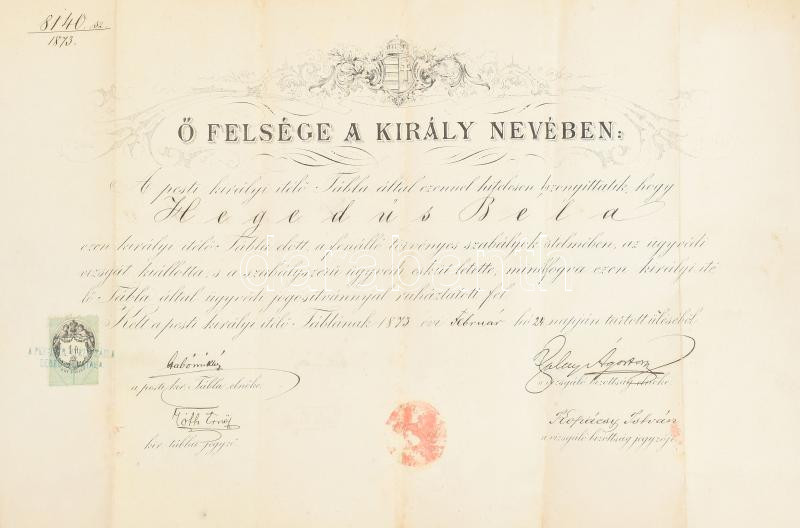 8140. sz.
1873.
Ő FELSÉGE A KIRÁLY NEVÉBEN:
A pesti királyi itélő Tábla által ezennel hitelesen bizonyittatik, hogy
Hegedűs Béla
ezen királyi itélő Tábla előtt, a fenálló törvényes szabályok értelmében, az ügyvédi
vizsgát kiállotta, s a szabályszerű ügyvédi esküt letette, minélfogva ezen királyi ité
lő Tábla által ügyvédi jogositvánnyal ruháztatott fel.
Kelt a pesti királyi itélő Táblának 1873 évi Február hó 24 napján tartott üléséből
a pesti kir. Tábla elnöke.
Tóth Ernő
kir. táblai jegyző.
Ágoston
a vizsgáló bizottság elnöke.
Kopácsy István
a vizsgáló bizottság jegyzője.
darabanth